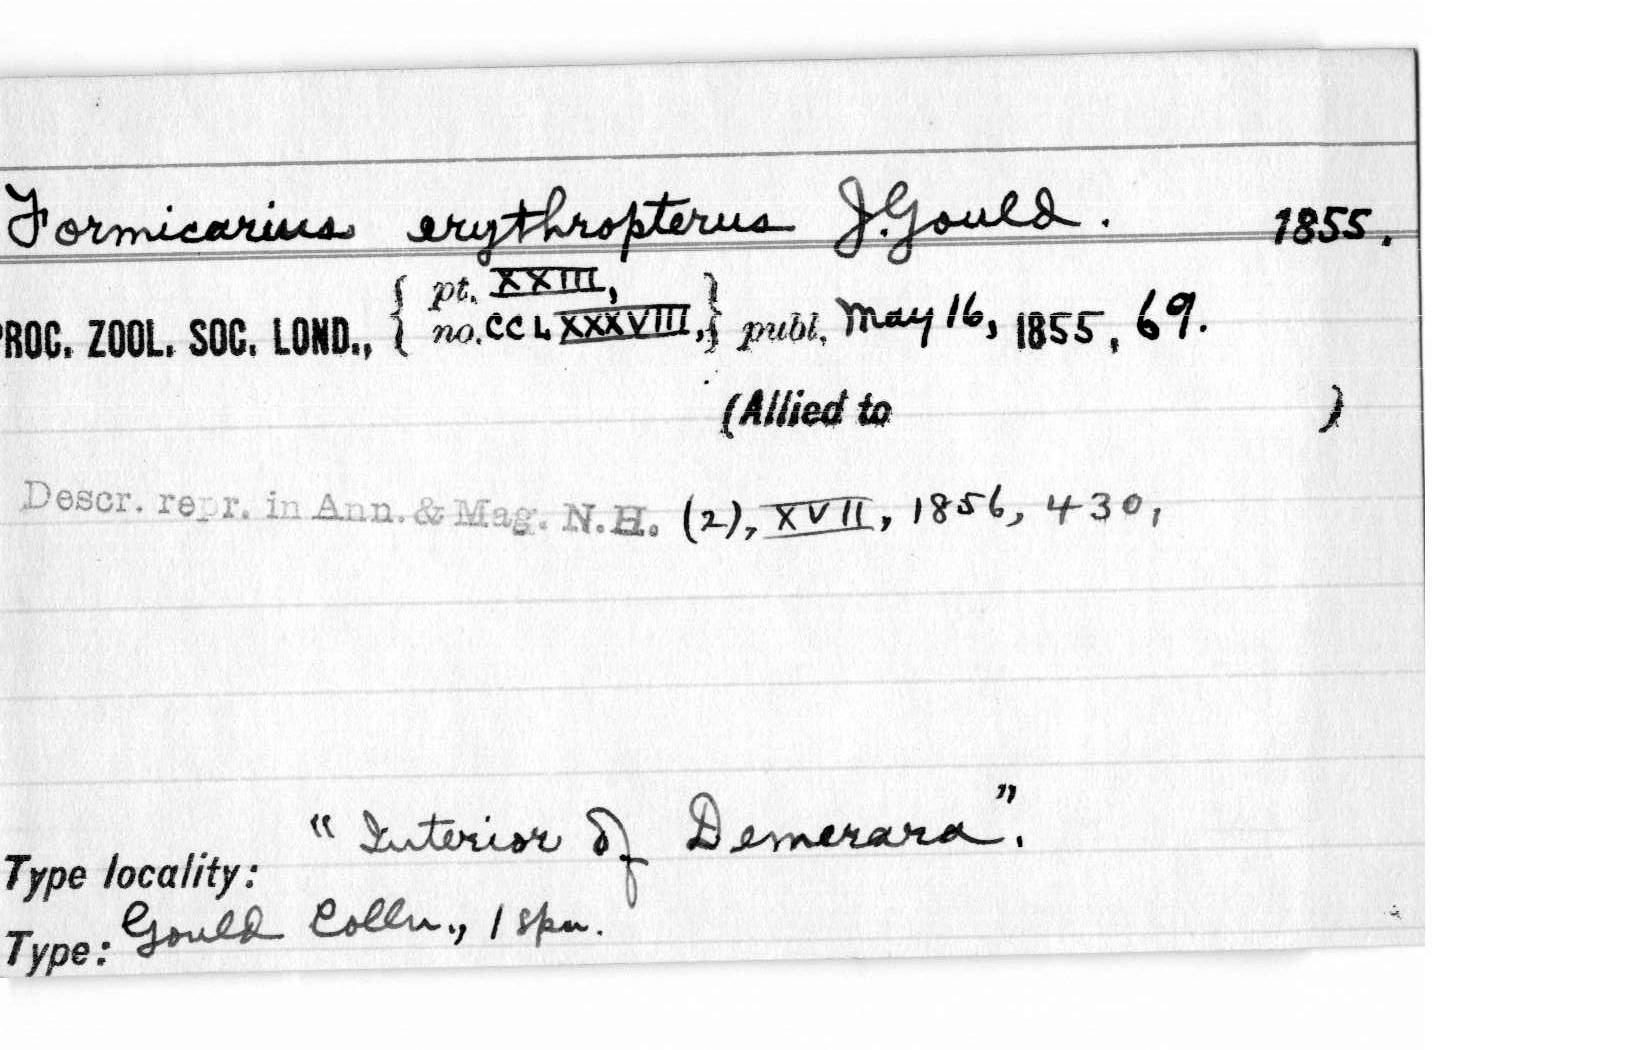 Formicarius erythropterus J. Gould. 1855.
pt. XXIII,
PROC. ZOOL. SOC. LOND., { no. CCLXXXVIII, } publ. May 16, 1855, 69.
(Allied to )
Descr. repr. in Ann. & Mag. N.H. (2), XVII, 1856, 430,
"Interior of Demerara".
Type locality:
Type: Gould Colln., 1 spn.